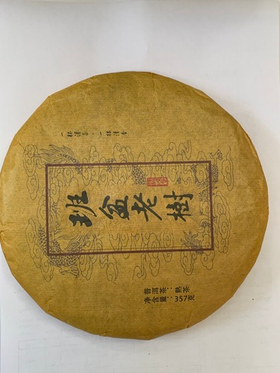 班盆老樹
普洱茶·熟茶
净含量:357克